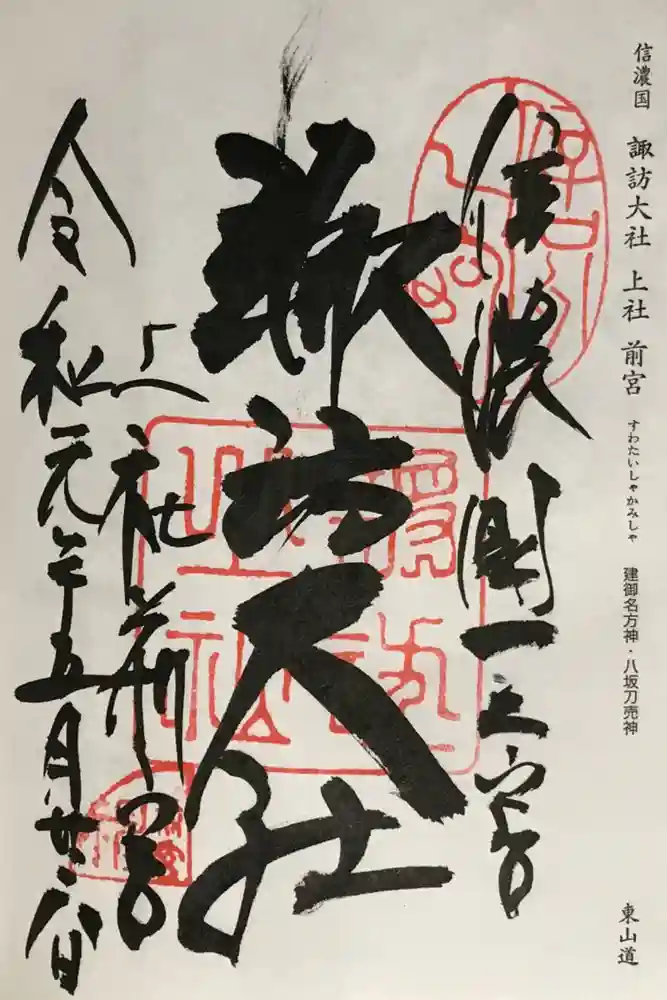 信濃国 諏訪大社 上社 前宮 すわたいしゃかみしゃ 建御名方神・八坂刀売神 東山道
信濃國一之宮
諏訪大社
上社前宮
令和元年五月廿六日